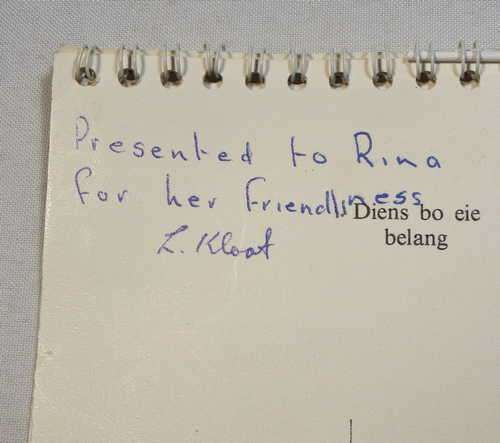 Presented to Rina
for her friendliness
Diens bo eie
belang
L. Kloot